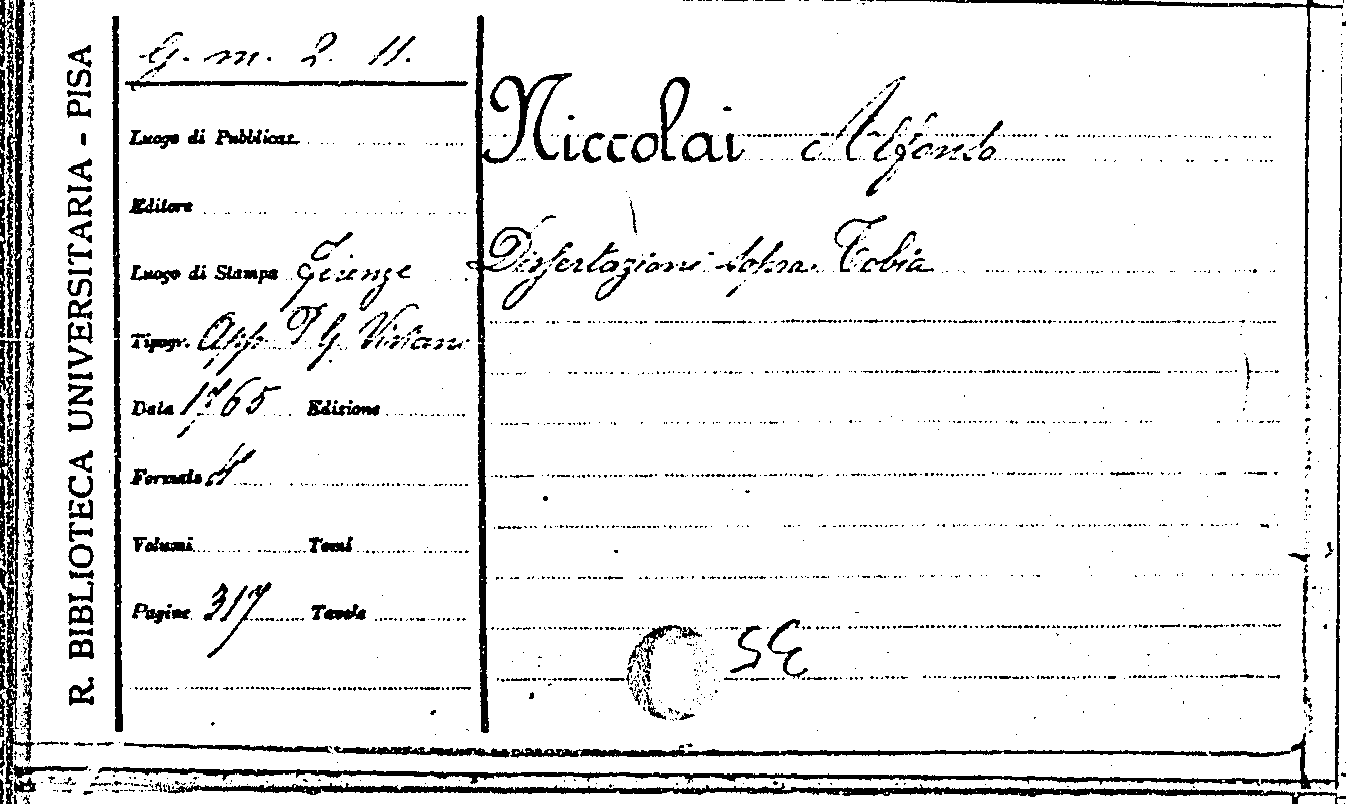 R. BIBLIOTECA UNIVERSITARIA - PISA
G. m. 2. 11.
Luogo di Pubblicaz.
Editore
Luogo di Stampa Firenze
Tipogr. App P G Viviani
Data 1765 Edizione
Formato 4°
Volumi Tomi
Pagine 317 Tavole
Niccolai Alfonso
Dissertazioni sopra Tobia